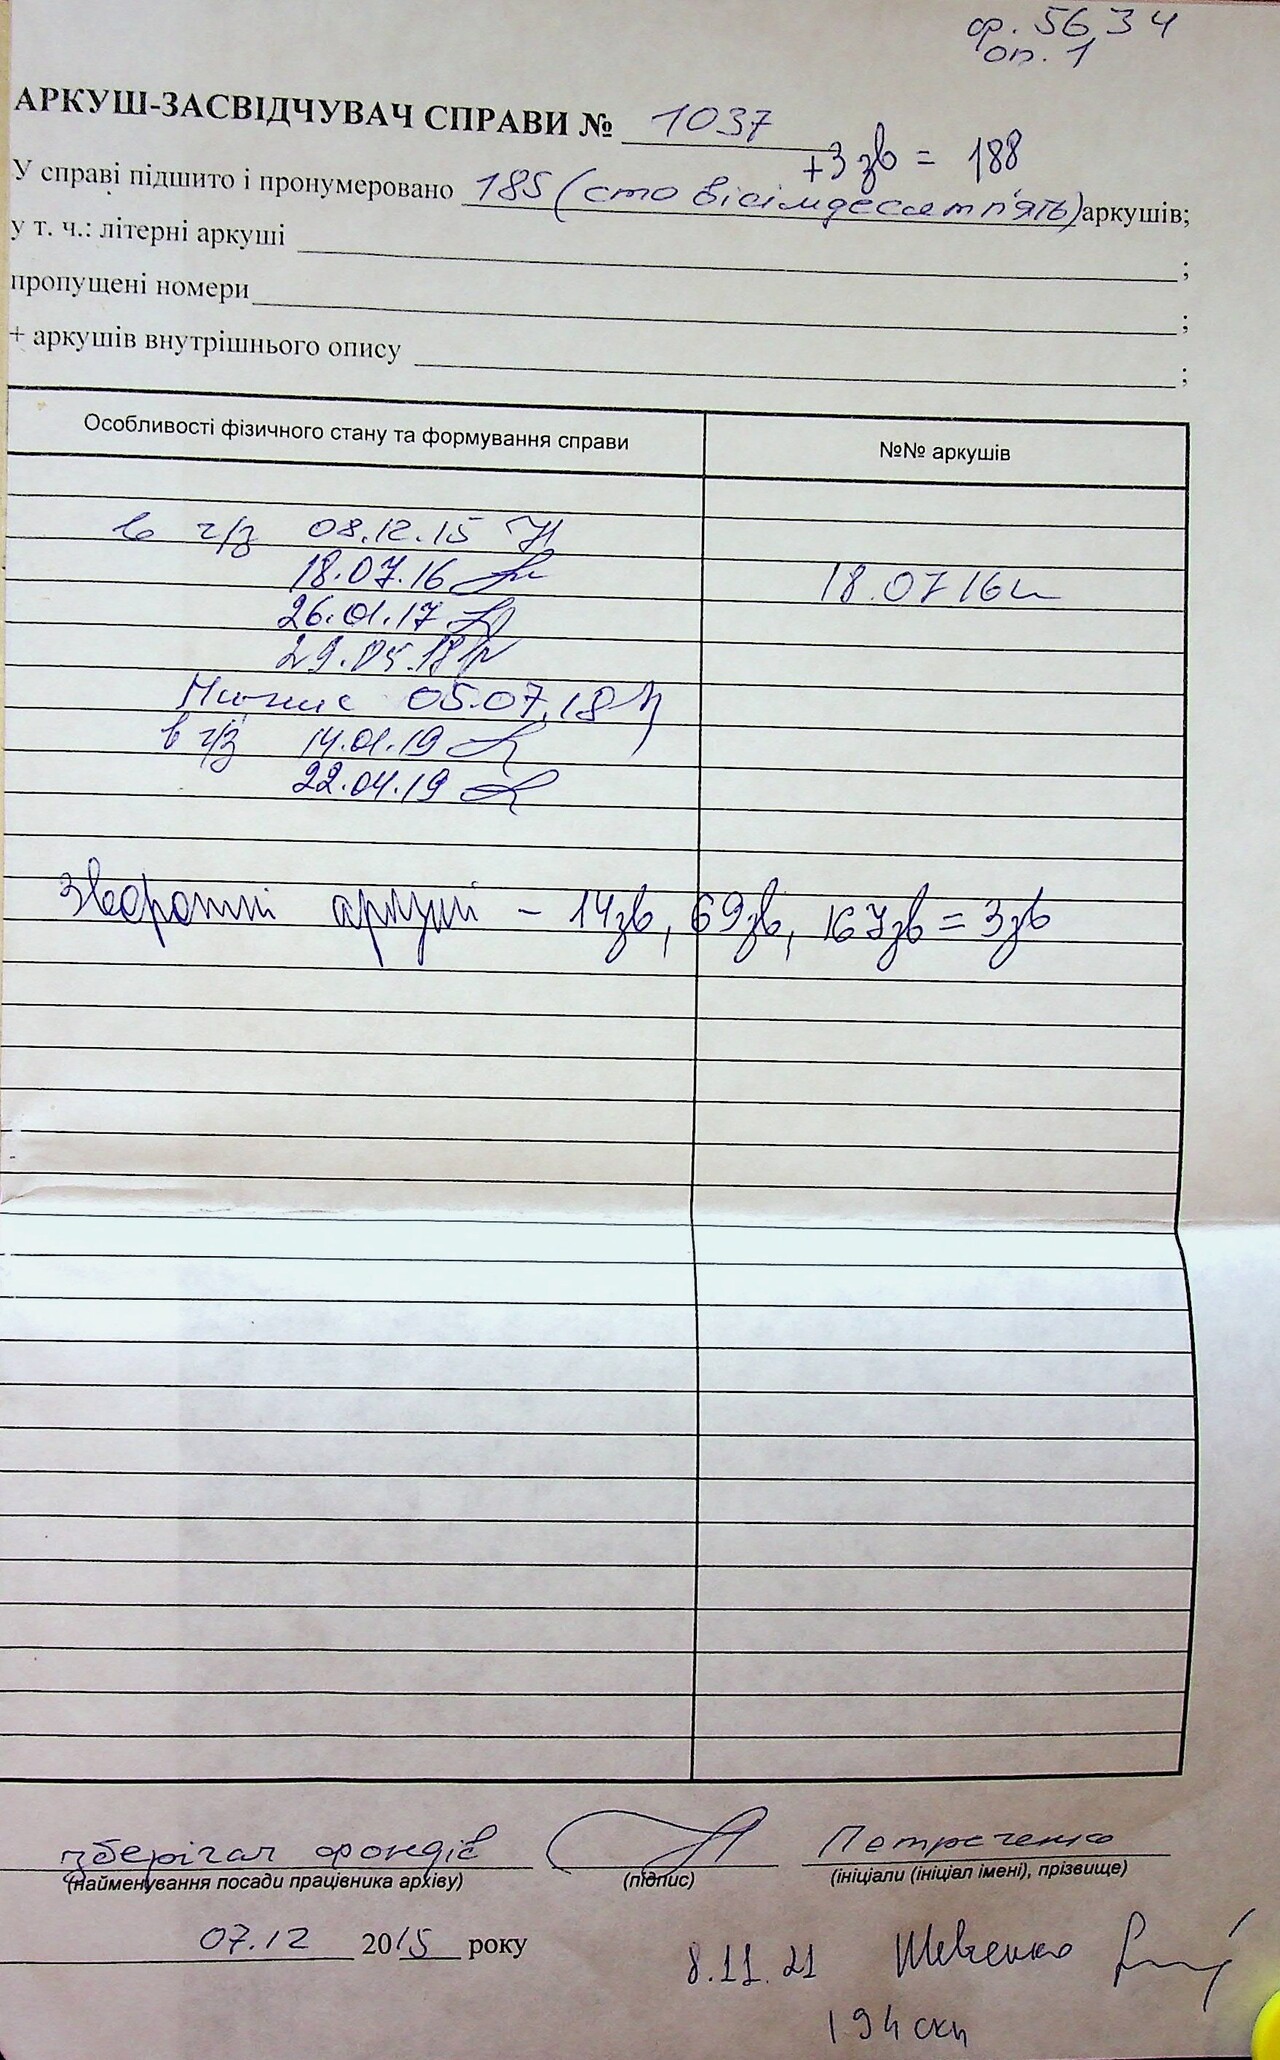 ф. 5634
оп. 1
АРКУШ-ЗАСВІДЧУВАЧ СПРАВИ № 1037
+3 зв = 188
У справі підшито і пронумеровано 185 (сто вісімдесят п'ять) аркушів;
у т. ч.: літерні аркуші ;
пропущені номери ;
+ аркушів внутрішнього опису ;
Особливості фізичного стану та формування справи №№ аркушів
в ч/з 08.12.15
18.07.16 18.07 16
26.01.17
29.05.18
05.07.18
в ч/з 14.01.19
22.04.19
зворотні аркуші – 14зв, 69зв, 167зв = 3зв
зберігач фондів Петраченко
(найменування посади працівника архіву) (підпис) (ініціали (ініціал імені), прізвище)
07.12 2015 року
8.11.21 Шевченко
194 скн